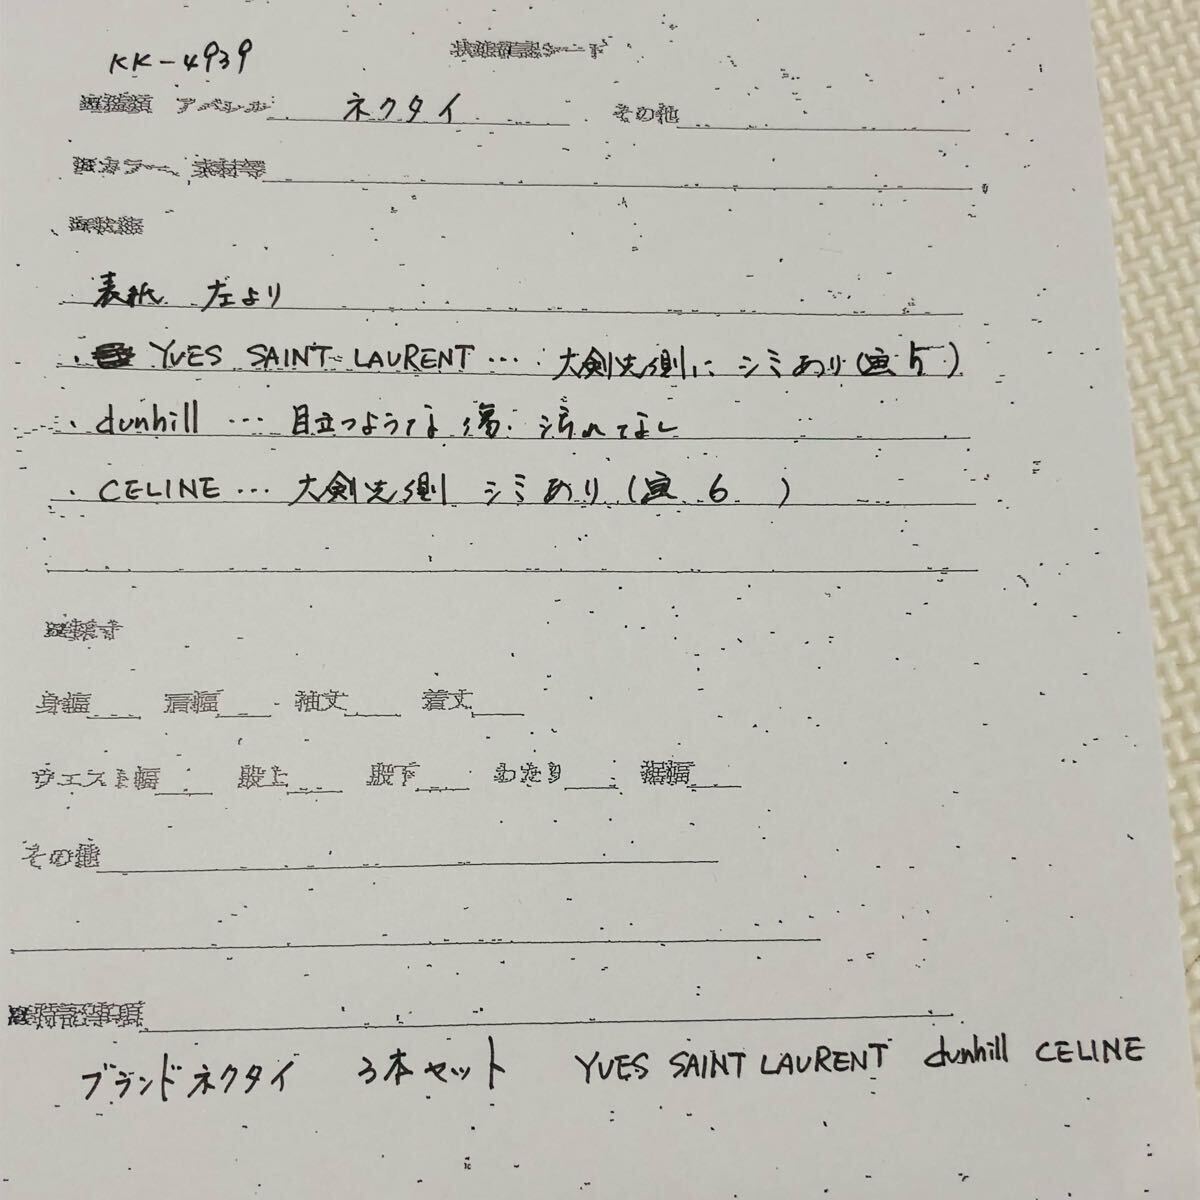 KK-4939
状態確認シート
アパレル ネクタイ その他
カラー、素材等
表紙 左より
・YVES SAINT LAURENT… 大剣先側に シミあり(画5)
・dunhill … 目立つような傷・汚れなし
・CELINE… 大剣先側 シミあり(画6)
身幅 肩幅 袖丈 着丈
ウエスト幅 股上 股下 わたり 裾幅
その他
特記事項
ブランドネクタイ 3本セット YVES SAINT LAURENT dunhill CELINE